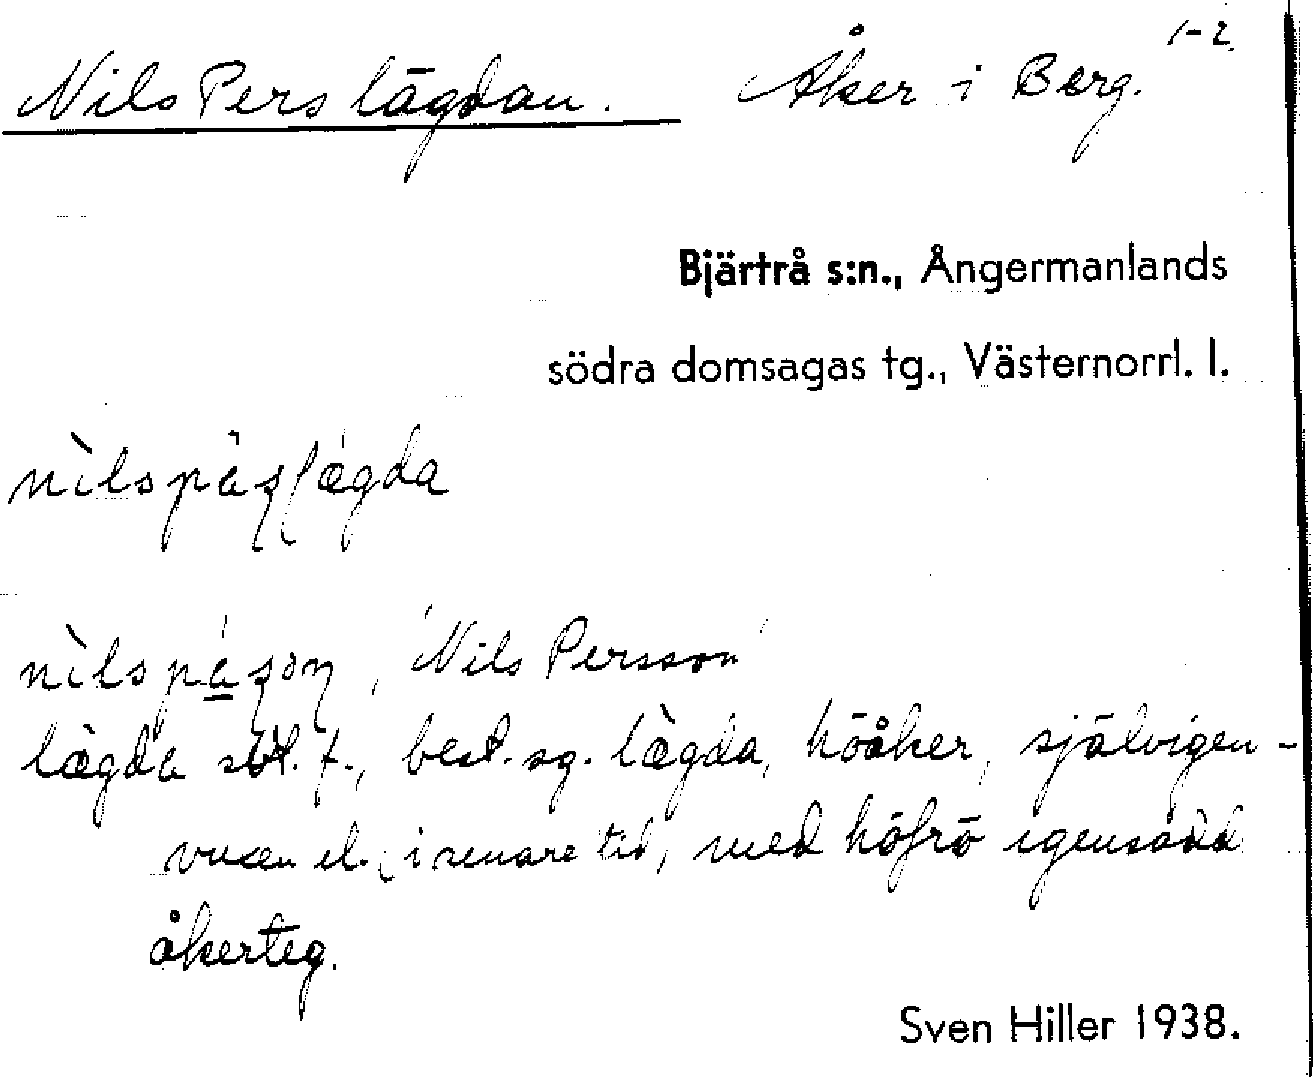 Nils Pers lägdan. Åker i Berg. 1-2.
Bjärtrå s:n., Ångermanlands
södra domsagas tg., Västernorrl. l.
nìlspàʂlægda
nìlspáʂon, 'Nils Persson'
lægda sbst. f., best. sg. lægda, höåker, självigen-
vuxen el. (i senare tid) med höfrö igensådd
åkerteg.
Sven Hiller 1938.